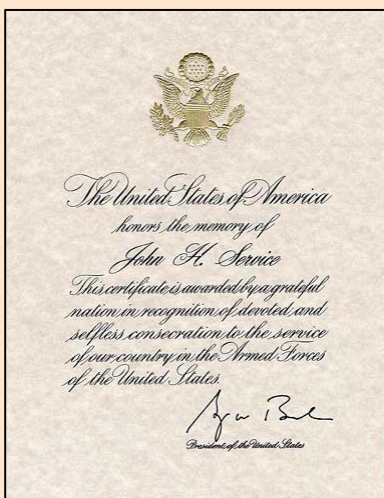 The United States of America
honors the memory of
John H. Service
This certificate is awarded by a grateful
nation in recognition of devoted and
selfless consecration to the service
of our country in the Armed Forces
of the United States.
President of the United States